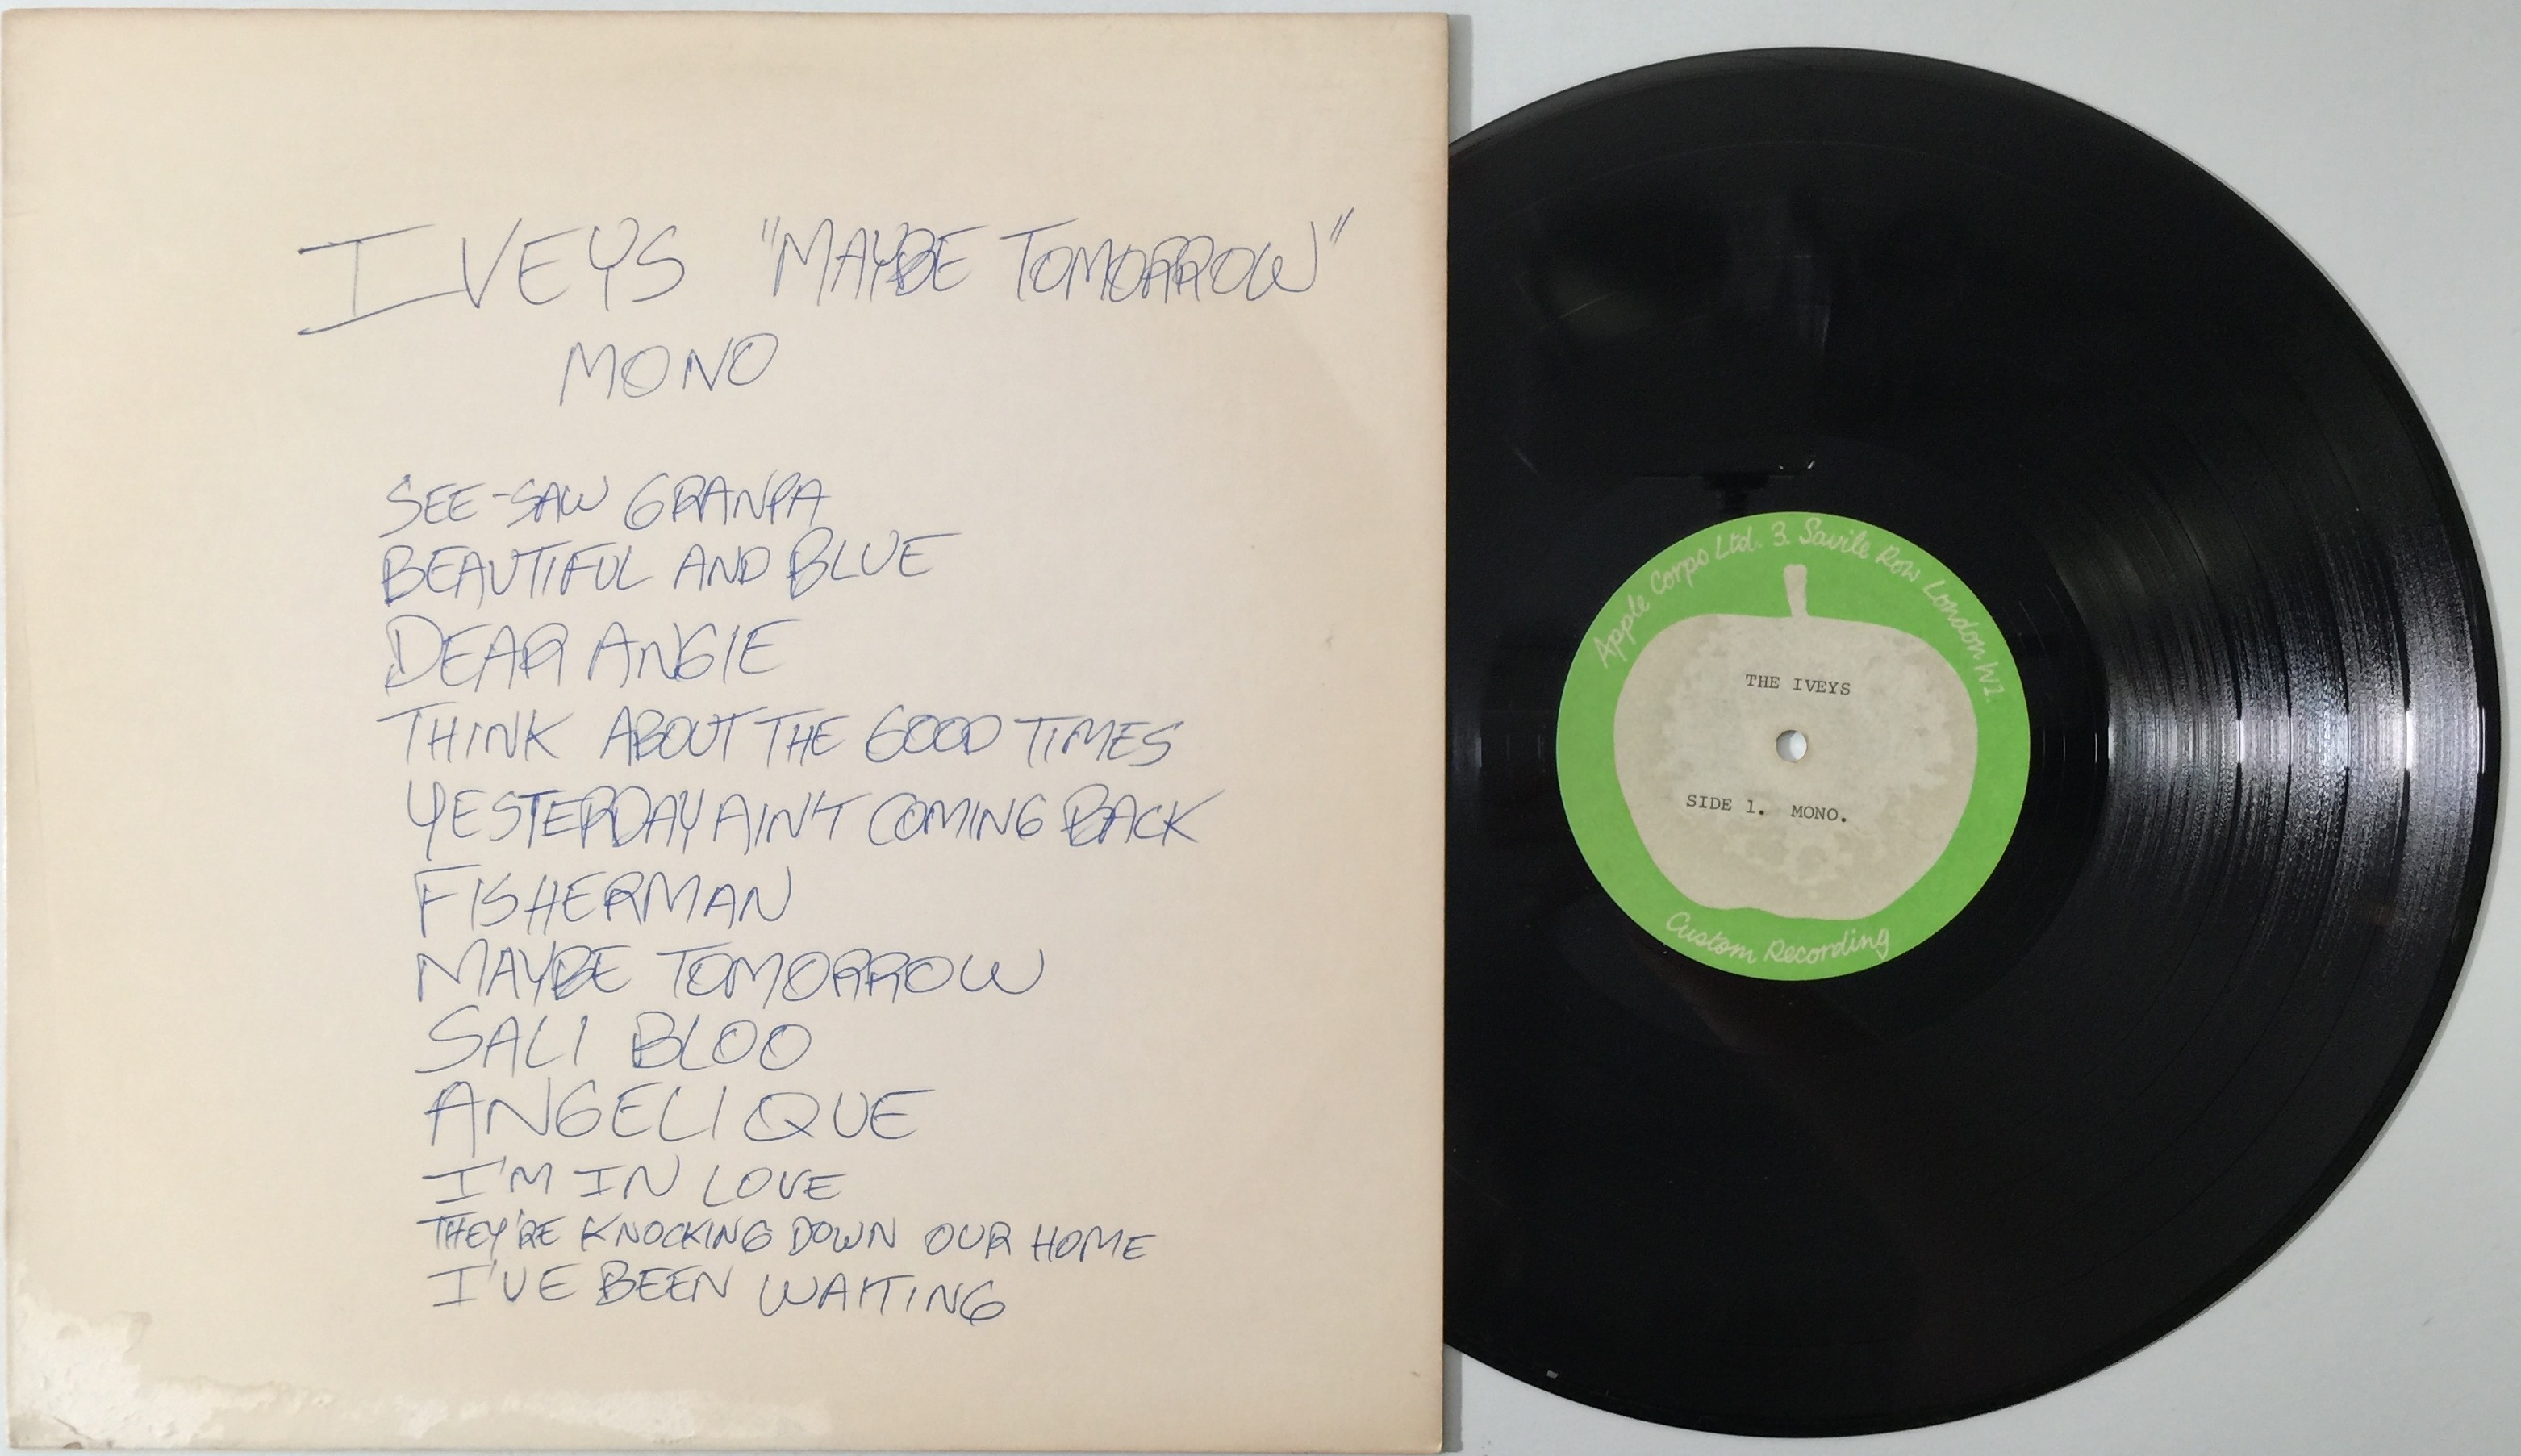 IVEYS "MAYBE TOMORROW"
MONO
SEE-SAW GRANPA
BEAUTIFUL AND BLUE
DEAR ANGIE
THINK ABOUT THE GOOD TIMES
YESTERDAY AIN'T COMING BACK
FISHERMAN
MAYBE TOMORROW
SALI BLOO
ANGELIQUE
I'M IN LOVE
THEY'RE KNOCKING DOWN OUR HOME
I'VE BEEN WAITING
Apple Corps Ltd. 3. Savile Row London W1
THE IVEYS
SIDE 1. MONO.
Custom Recording